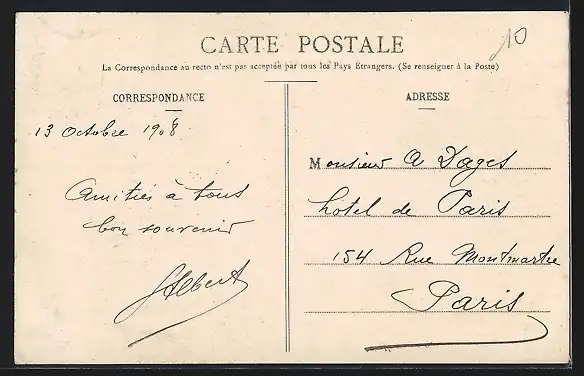 10
CARTE POSTALE
La Correspondance au recto n'est pas acceptée par tous les Pays Etrangers. (Se renseigner à la Poste)
CORRESPONDANCE
13 Octobre 1908
Amitiés à tous
bon souvenir
Albert
ADRESSE
Monsieur A Dages
hôtel de Paris
154 Rue Montmartre
Paris